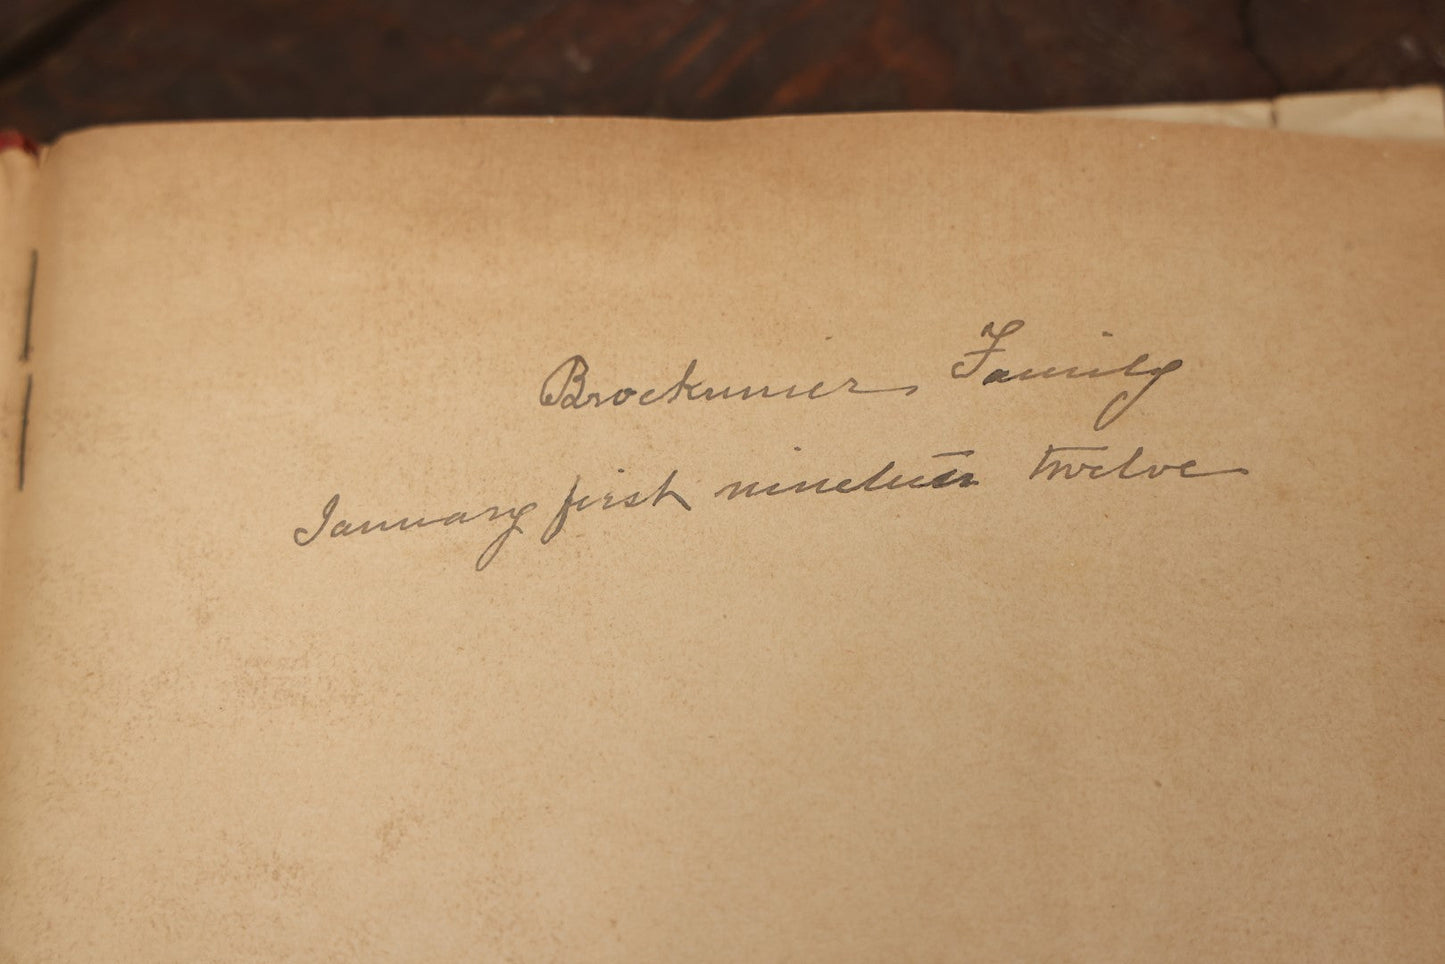 Brockunier Family
January first nineteen twelve